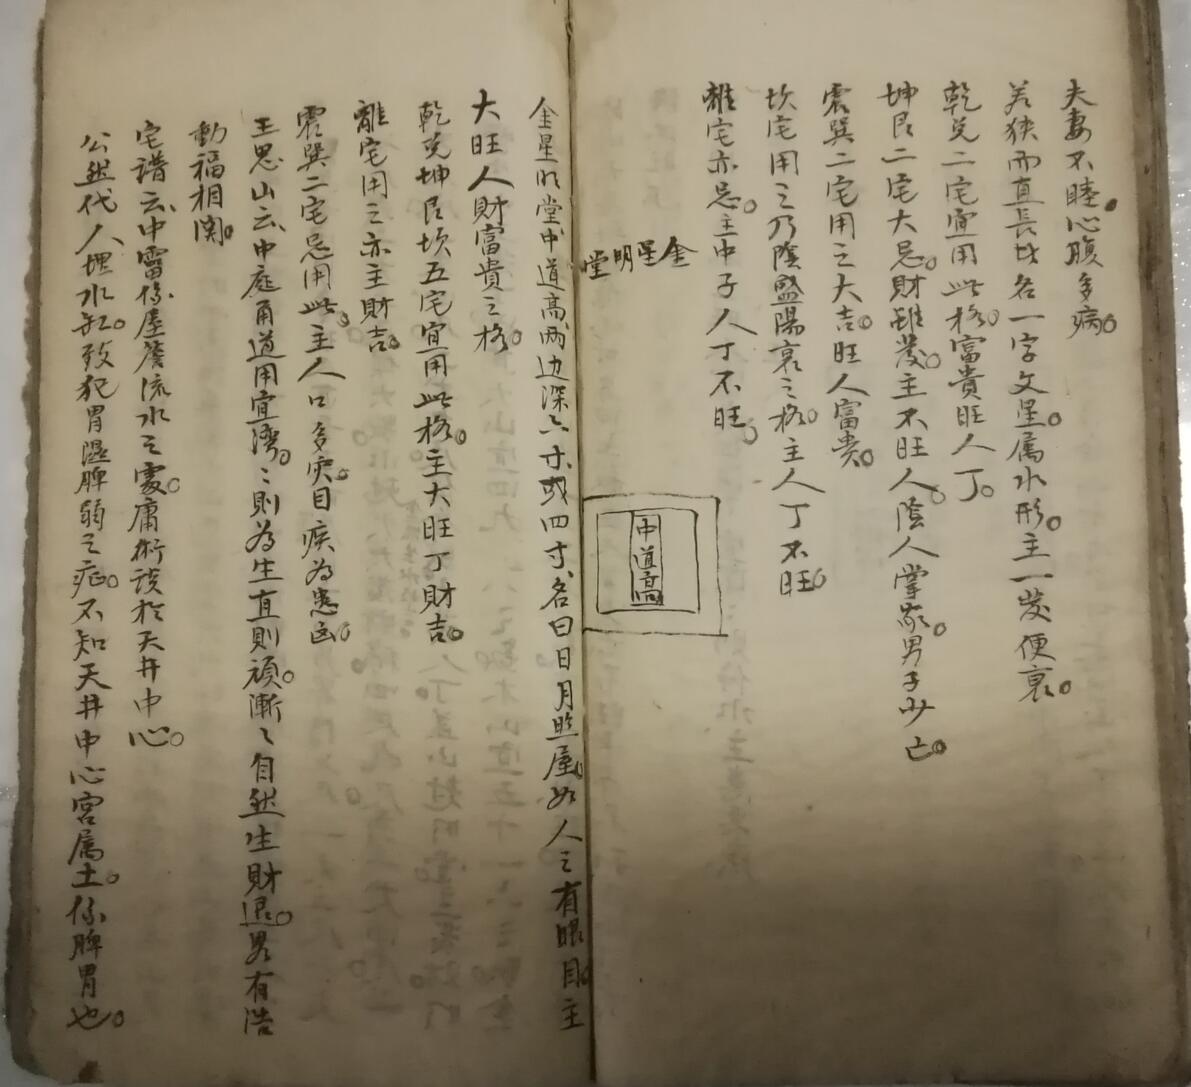 夫妻不睦。心腹多病。
若狹而直長者名一字文星。属水形。主一发便衰。
乾兌二宅宜用此格。富貴旺人丁。
坤艮二宅大忌。財雖发。主不旺人。陰人掌家。男子少亡。
震巽二宅用之大吉。旺人富貴。
坎宅用之乃陰盛陽衰之格。主人丁不旺。
離宅亦忌。主中子人丁不旺。
金星明堂
中道高
金星明堂、中道高、两边深六寸、或四寸、名曰日月照屋。如人之有眼目。主
大旺人財富貴之格。
乾兌坤艮坎五宅宜用此格。主大旺丁財吉。
離宅用之亦主財吉。
震巽二宅忌用此。主人口多灾。目疾为患凶。
王思山云、中庭甬道用宜湾。〻則为生直則頑。漸〻自然生財退。男有浩
動福相関。
宅譜云、中霤係屋簷流水之處。庸術误於天井中心。
公然代人埋水缸。致犯胃濕脾弱之症。不知天井中心宮属土。係脾胃也。